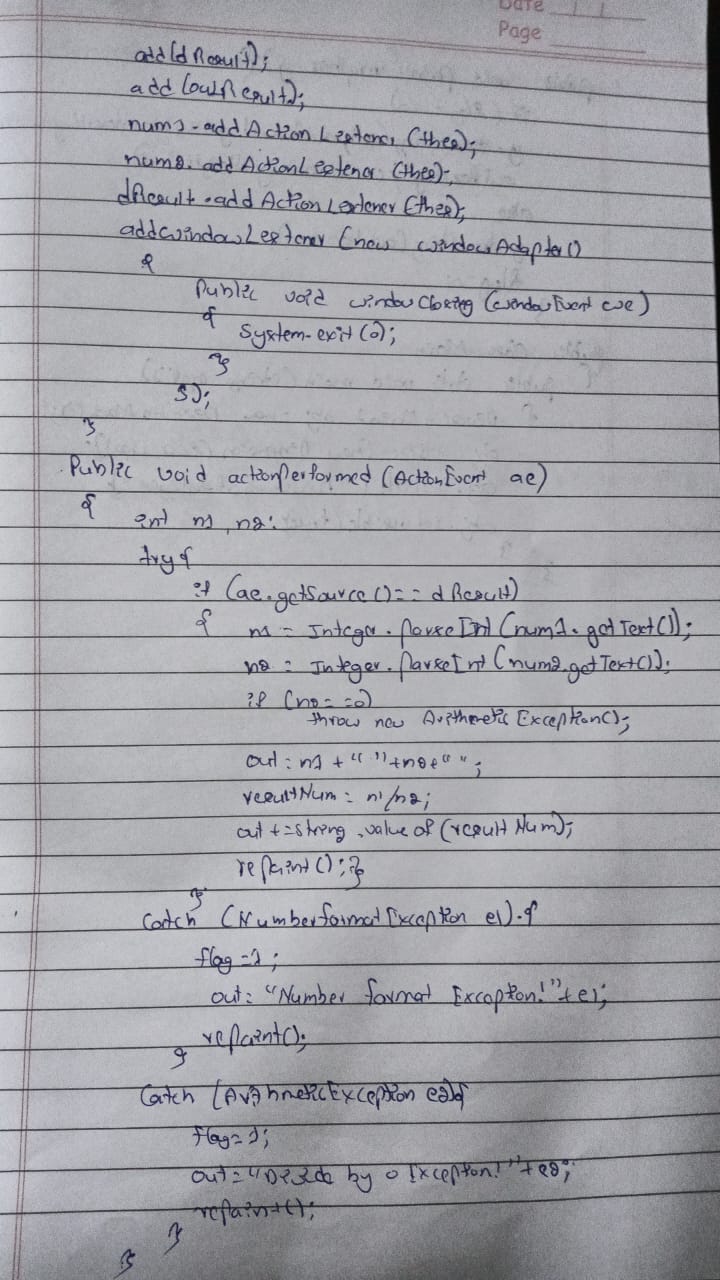 Date
Page
add(dResult);
add(outResult);
num1.addActionListener(this);
num2.addActionListener(this);
dResult.addActionListener(this);
addwindowListener(new windowAdapter()
{
Public void windowClosing(windowEvent we)
{
System.exit(0);
}
});
}
Public void actionPerformed (ActionEvent ae)
{
int n1, n2;
try{
if (ae.getSource()==dResult)
{
n1 = Integer.ParseInt(num1.getText());
n2 = Integer.ParseInt(num2.getText());
if (n2==0)
throw new ArithmeticException();
out = n1 + " " + n2 + " ";
resultNum = n1/n2;
out += string.value of (result Num);
repaint();}
}
Catch (NumberformatException e1){
flag=1;
out = "Number format Exception!" + e1;
repaint();
}
Catch (ArithmeticException e2){
flag=1;
out = "Divide by 0 Exception!" + e2;
repaint();
}
}